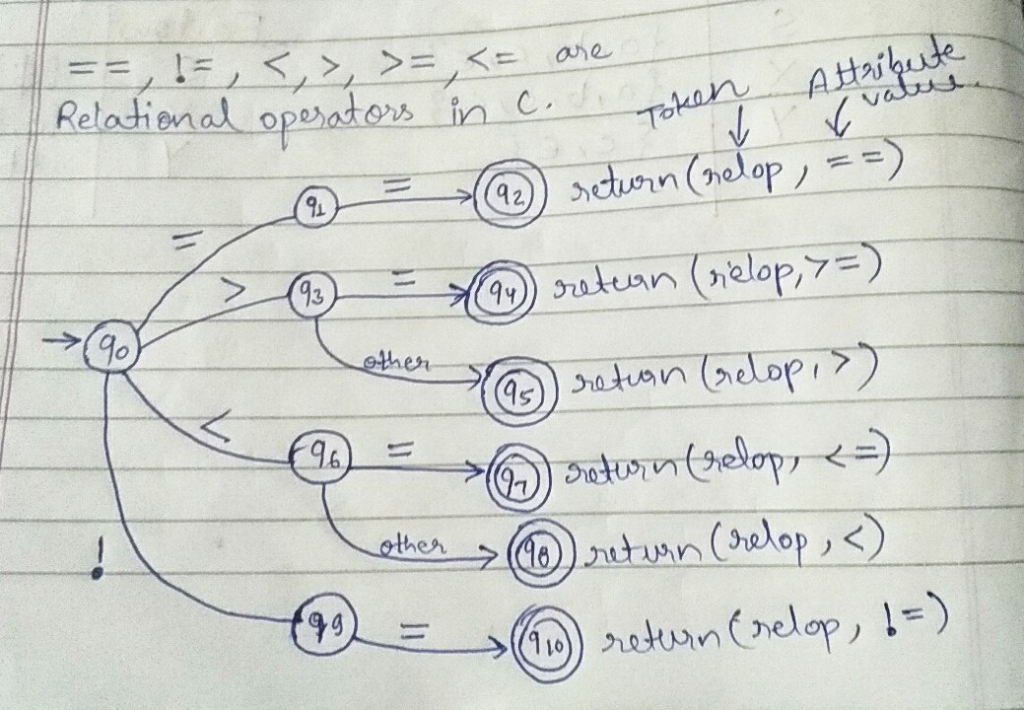 ==, !=, <, >, >=, <= are
Relational operators in C.
Token
Attribute
value.
q1 = q2 return (relop, ==)
=
> q3 = q4 return (relop, >=)
q0
other q5 return (relop, >)
< q6 = q7 return (relop, <=)
other q8 return (relop, <)
!
q9 = q10 return (relop, !=)